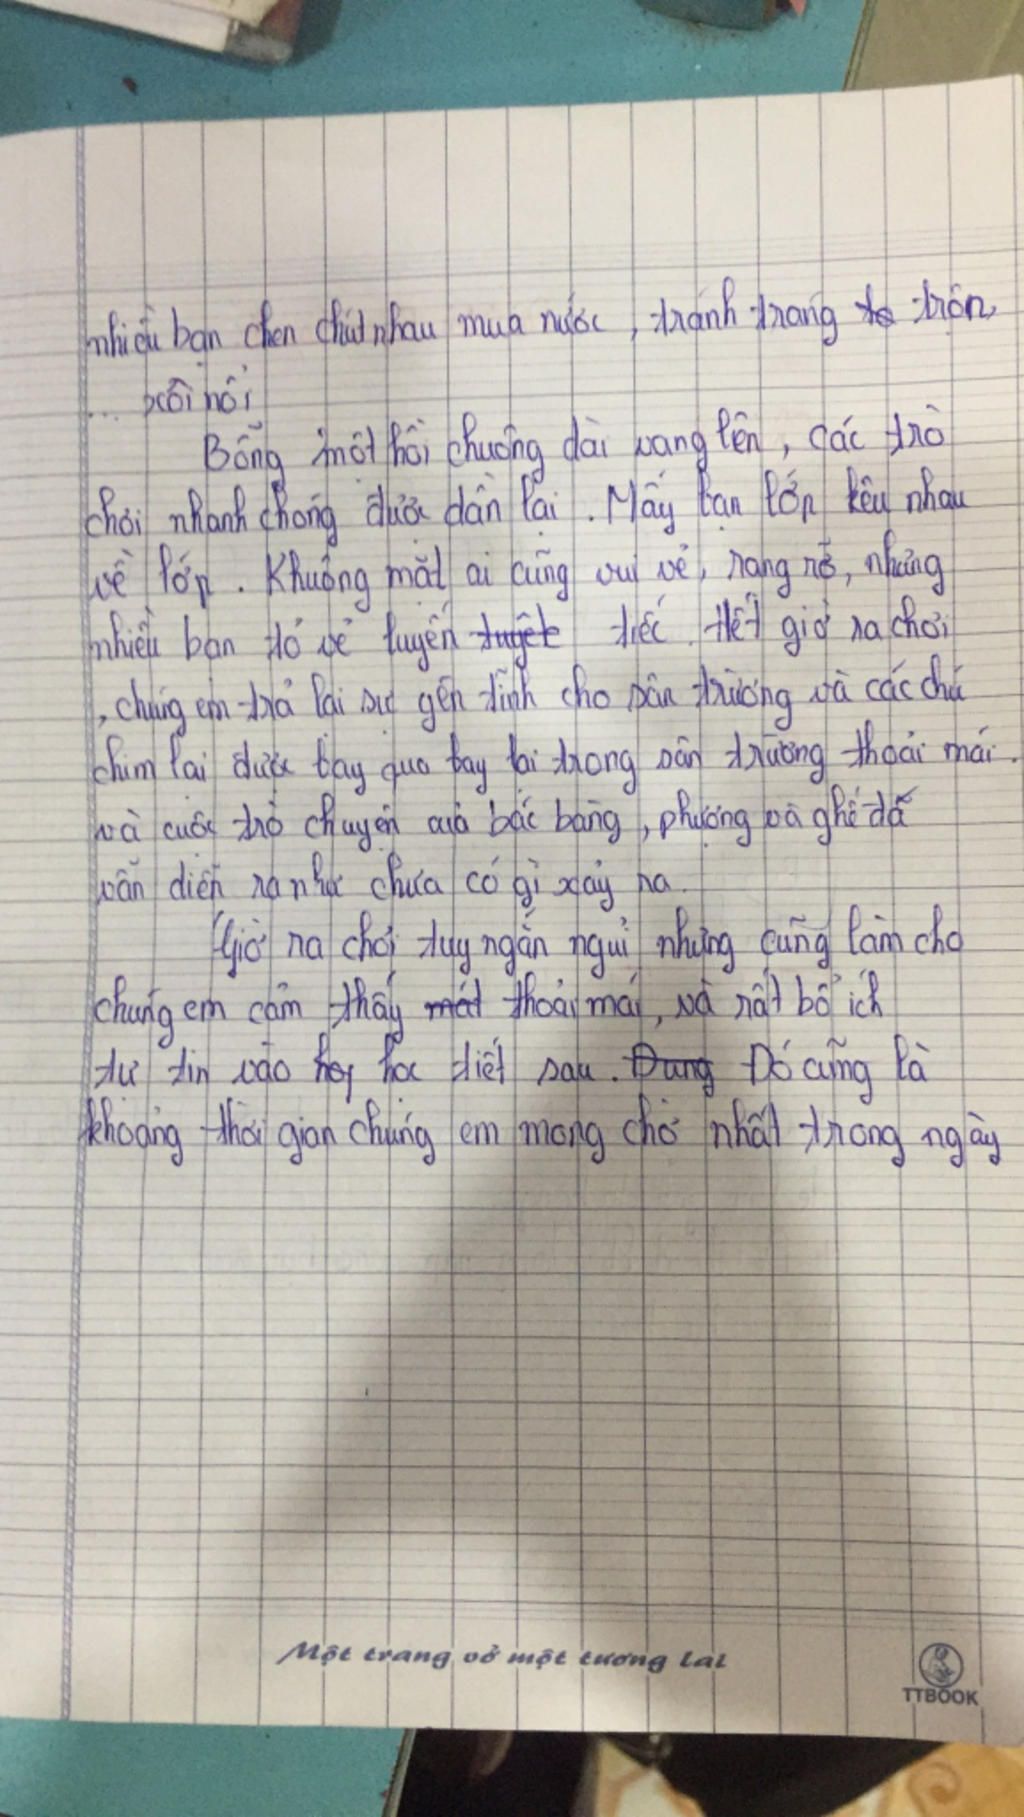 nhiều bạn chen chút nhau mua nước, tránh trang to trôn,
... xôi nổi
Bỗng một hồi chuông dài vang lên, các trò
chơi nhanh chóng được dần lại. Mấy bạn lớp kêu nhau
về lớp. Khuông mặt ai cũng vui vẻ, rạng rỡ, nhưng
nhiều bạn tỏ vẻ luyến tuyệt tiếc. Hết giờ ra chơi
, chúng em trả lại sự yên tĩnh cho sân trường và các chú
chim lại được bay qua bay lại trong sân trường thoải mái.
và cuộc trò chuyện của bác bàng, phượng và ghế đá
vẫn diễn ra như chưa có gì xảy ra.
Giờ ra chơi tuy ngắn ngủi nhưng cũng làm cho
chúng em cảm thấy mát thoải mái, và rất bổ ích
tự tin vào học tiết sau. Dung Đó cũng là
khoảng thời gian chúng em mong chờ nhất trong ngày
Một trang vở một tương lai
TTBOOK